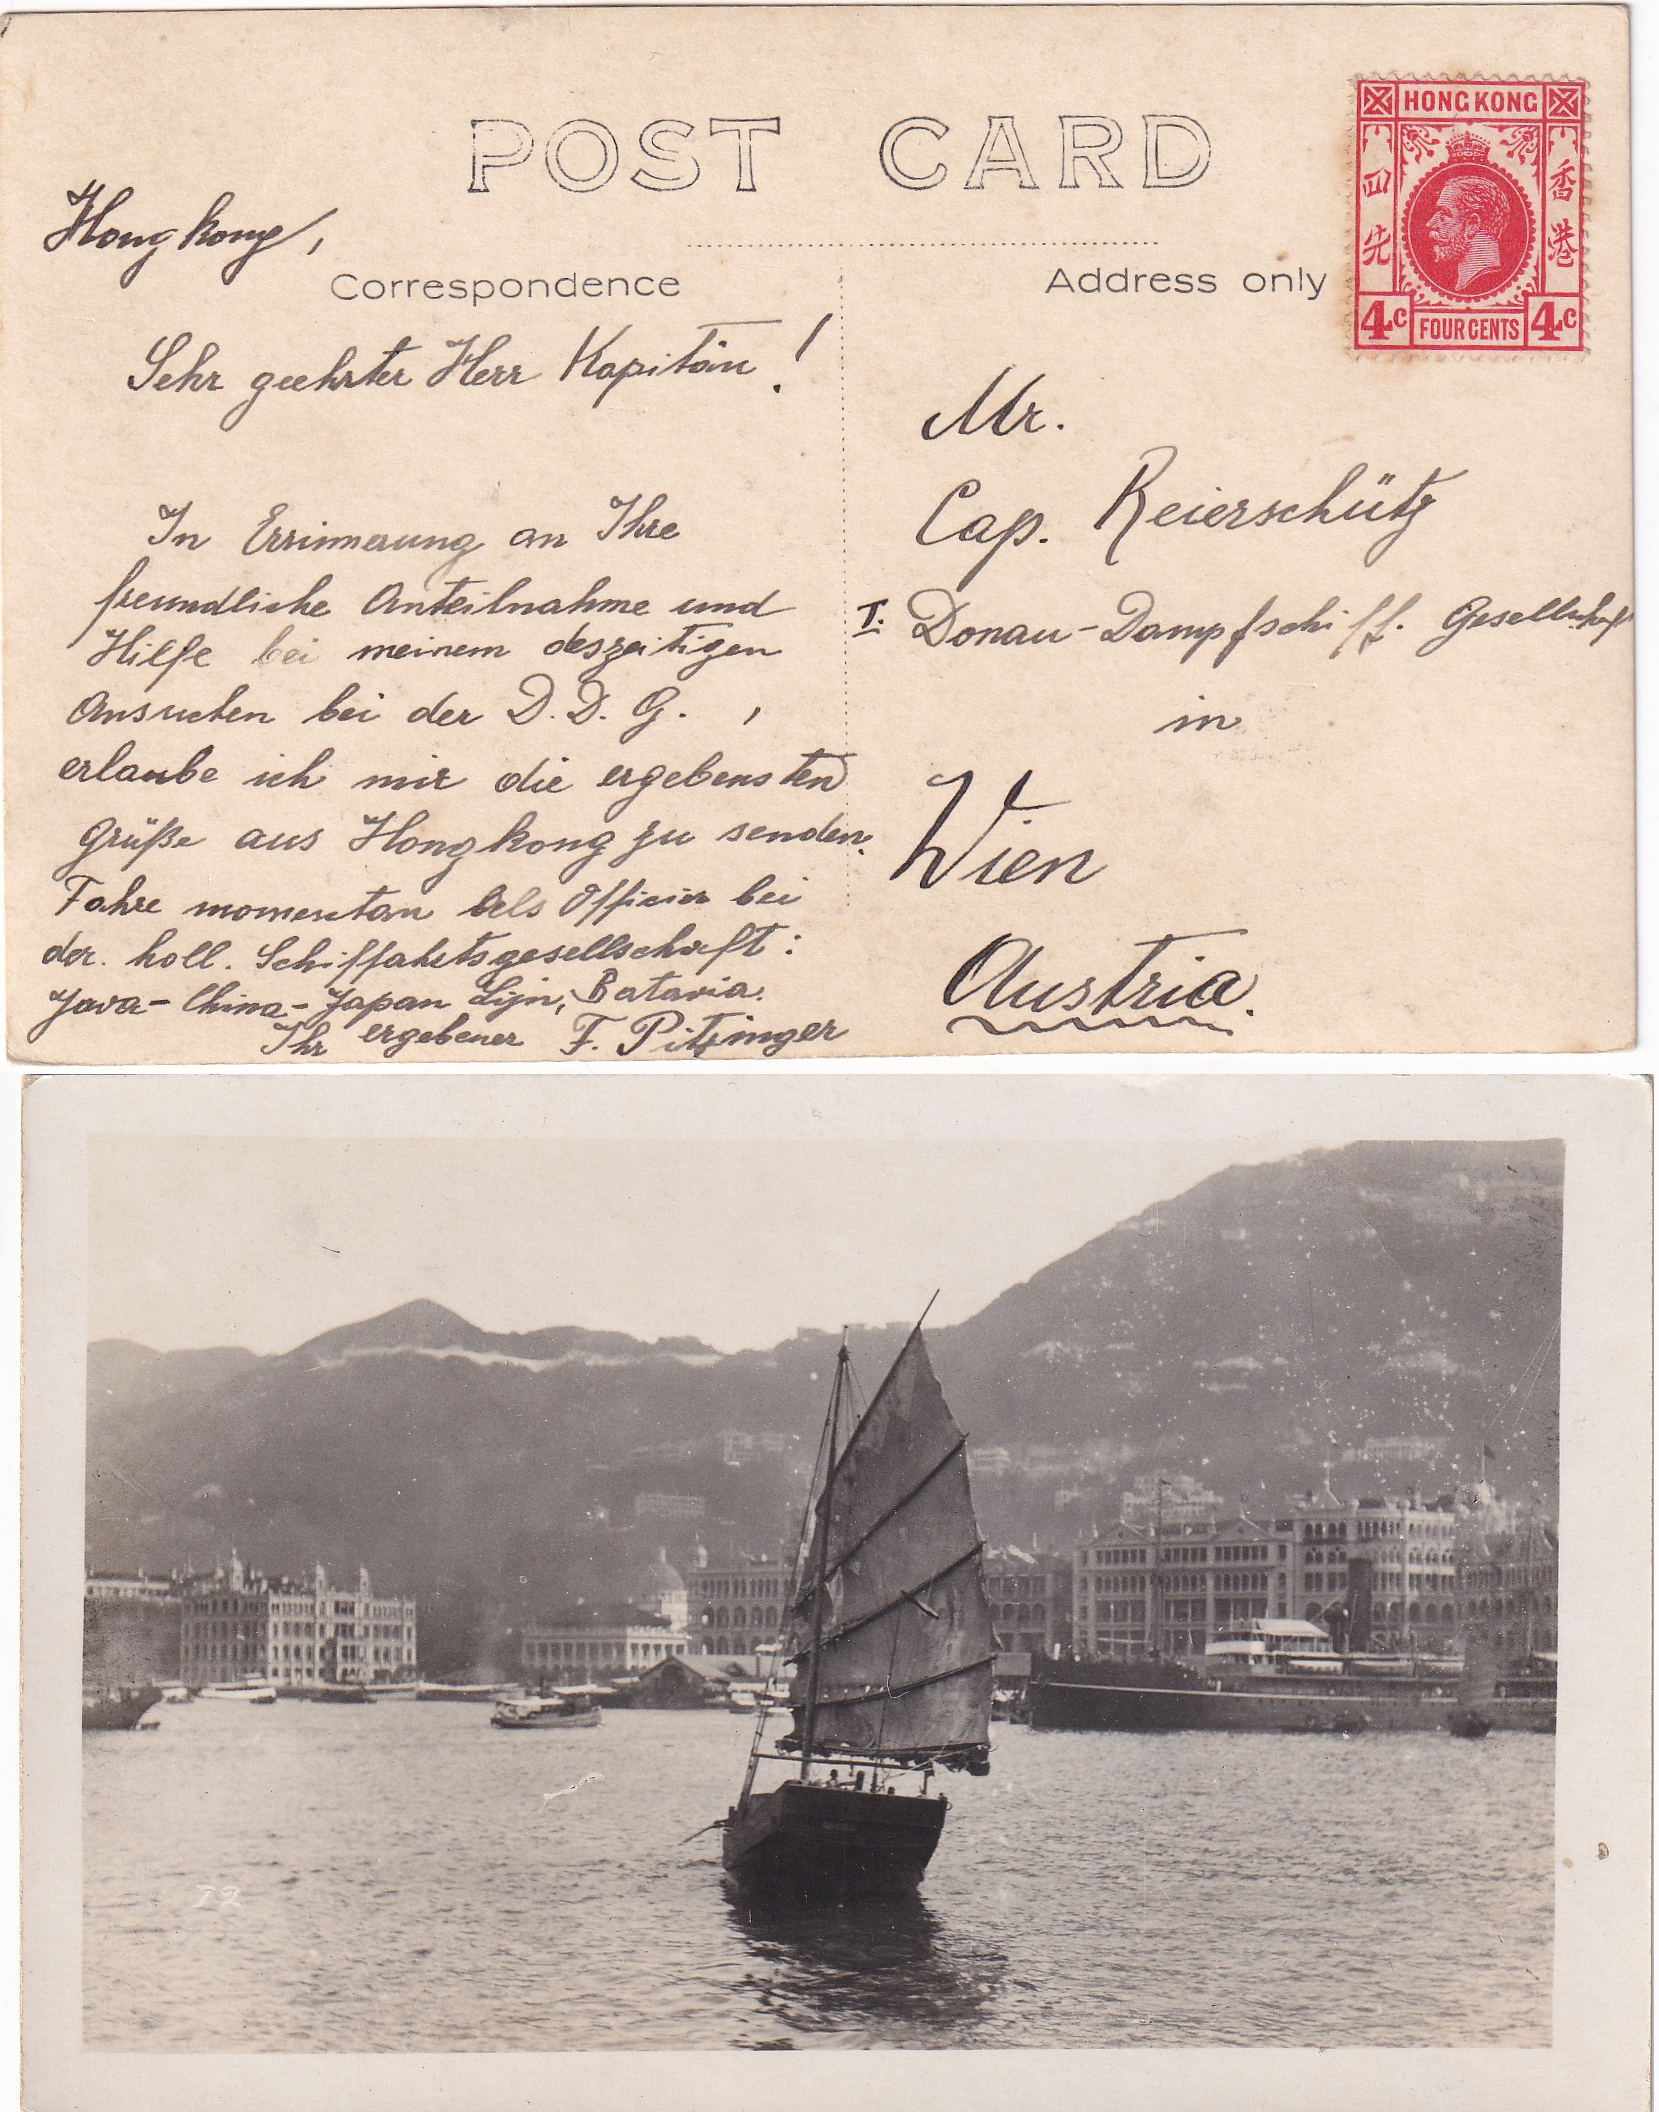 POST CARD
Hongkong,
Correspondence
Sehr geehrter Herr Kapitän!
In Errinnerung an Ihre
freundliche Anteilnahme und
Hilfe bei meinem deszeitigen
Ansuchen bei der D.D.G. ,
erlaube ich mir die ergebensten
Grüße aus Hongkong zu senden.
Fahre momentan als Officier bei
der. holl. Schiffahrtsgesellschaft:
Java-China-Japan Lijn, Batavia.
Ihr ergebener F. Pitzinger
Address only
HONG KONG
四先
香港
4c FOUR CENTS 4c
Mr.
Cap. Reierschütz
I. Donau-Dampfschiff. Gesellschaft
in
Wien
Austria.
72